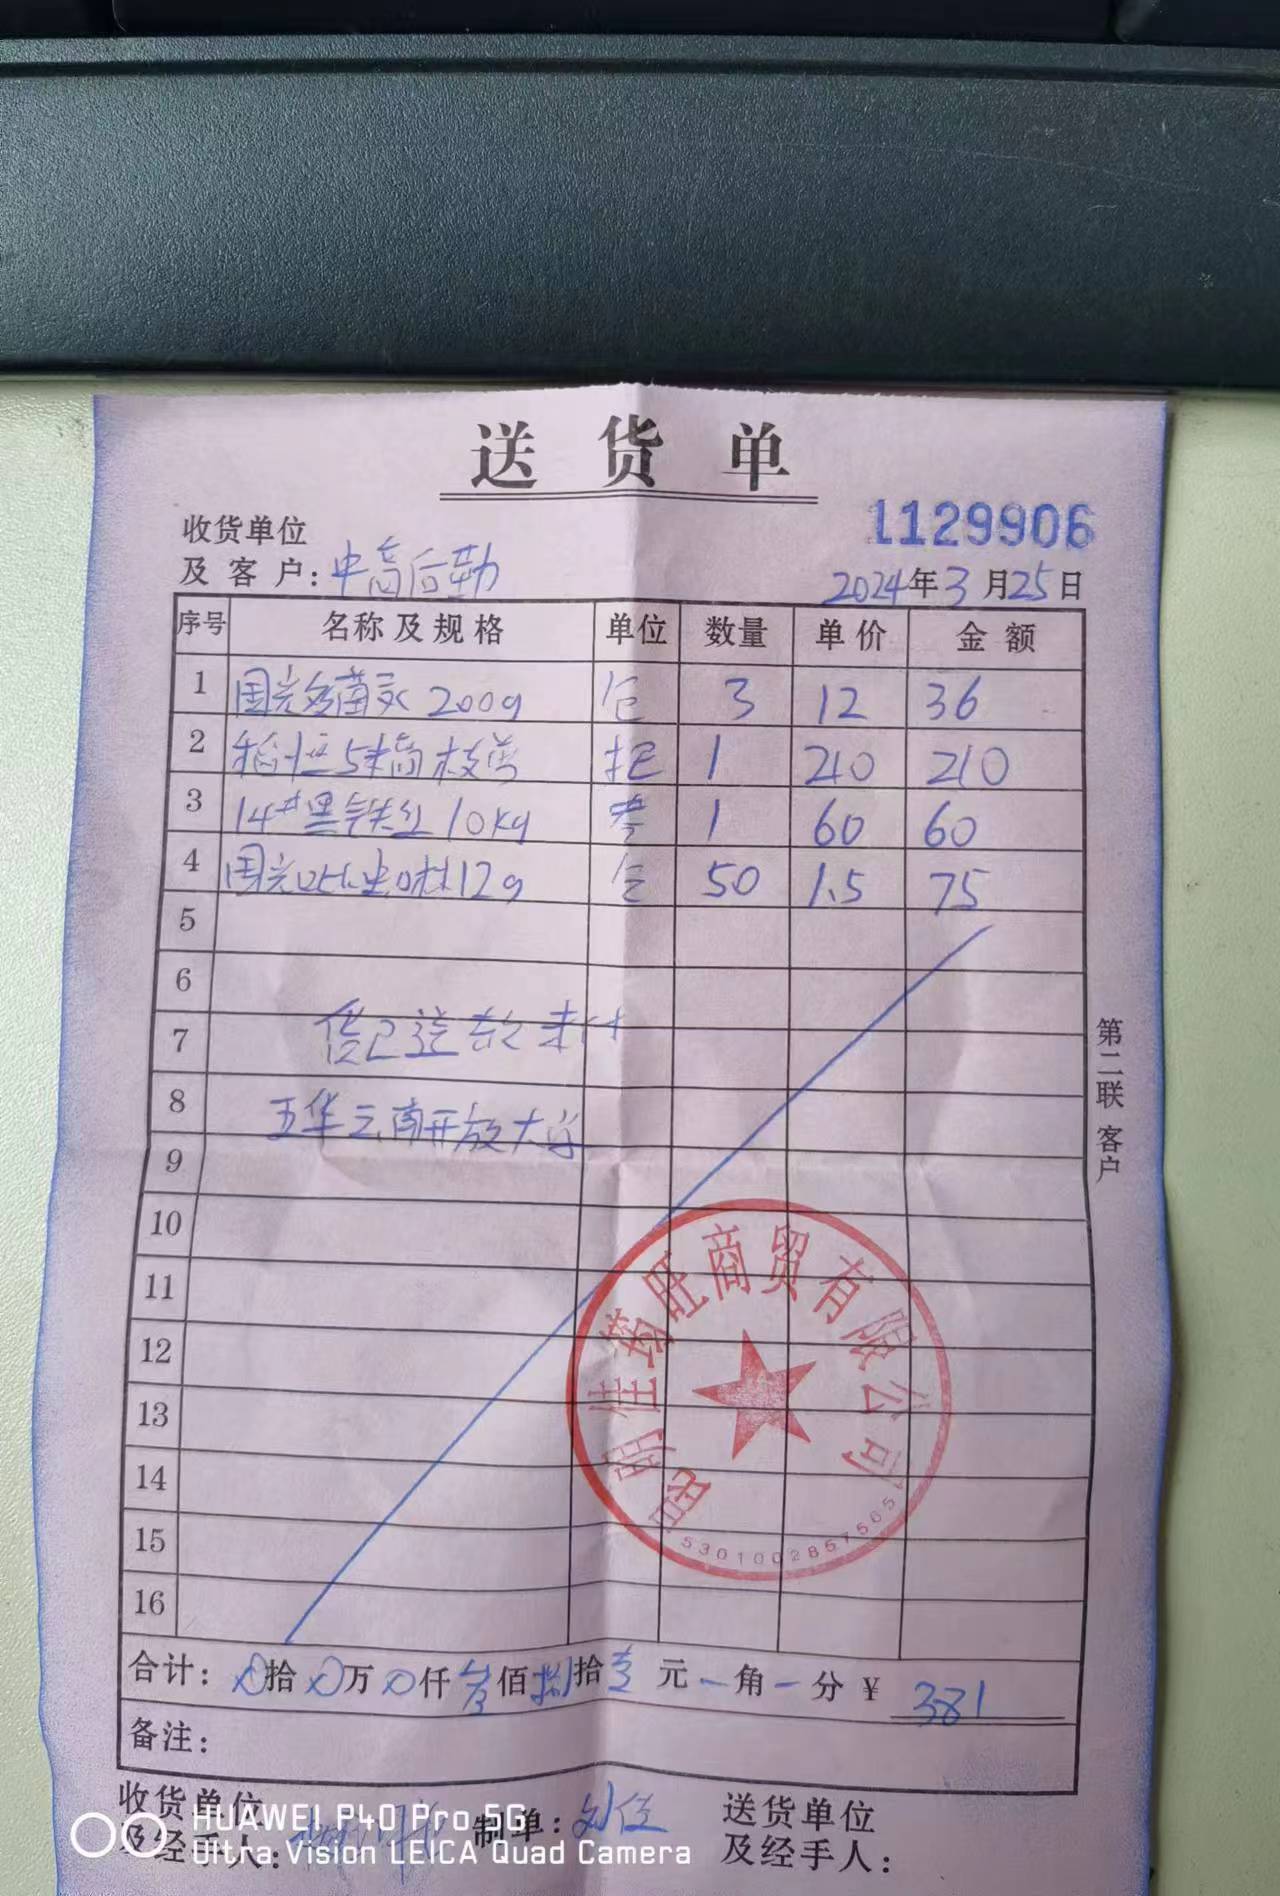 送货单
1129906
收货单位
及客户：中高后勤
2024年3月25日
序号 名称及规格 单位 数量 单价 金额
1 国光多菌灵 200g 包 3 12 36
2 5米高枝剪 把 1 210 210
3 14#黑铁丝 10kg 1 60 60
4 国光 12g 包 50 1.5 75
5
6
7 货已送款未付
8 五华云南开放大学
9
10
11
12
13
14
15
16
第二联 客户
昆明佳 旺商贸有限公司
5301002857565
合计：0拾0万0仟叁佰捌拾壹元一角一分 ¥ 381
备注：
收货单位
及经手人：
制单：刘佳
送货单位
及经手人：
HUAWEI P40 Pro 5G
Ultra Vision LEICA Quad Camera